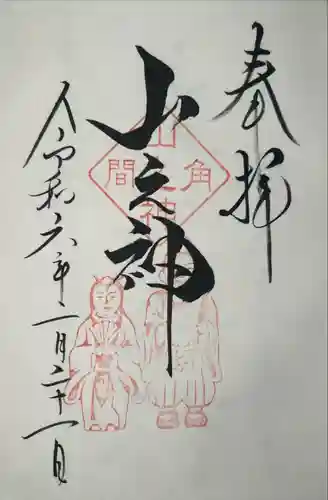 奉拝
山之神
山之神
角間
令和六年二月二十一日